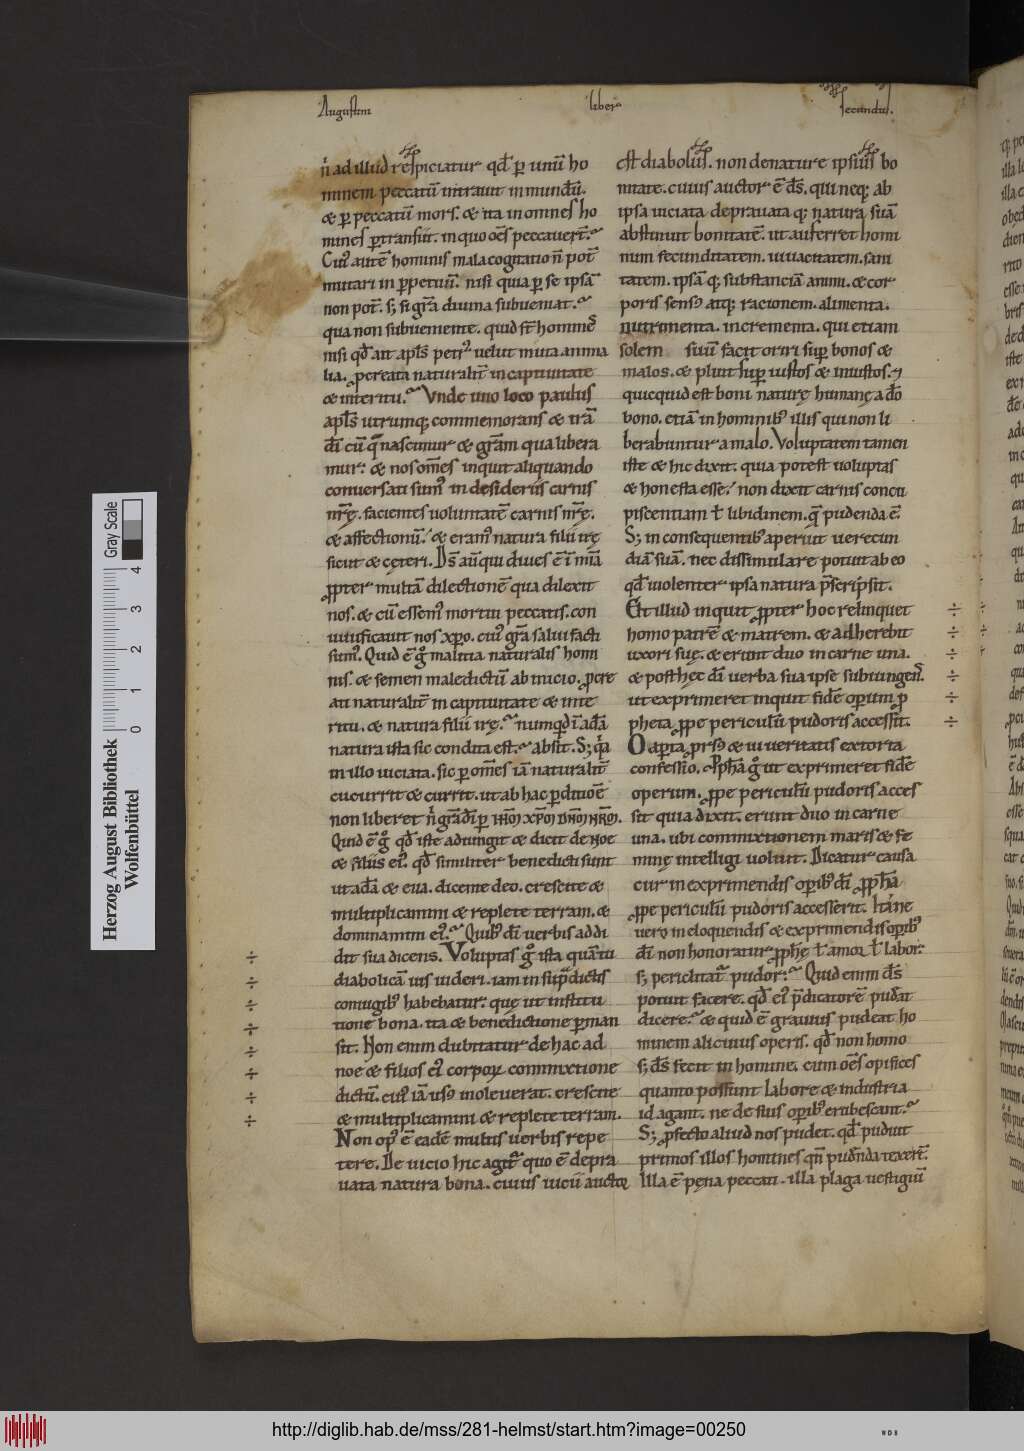 Augustini liber secundus.
n̄ ad illud respiciatur qd̄ ꝑ unū ho
minem peccatū intrauit in mundū.
& ꝑ peccatū mors. & ita in omnes ho
mines ꝑtransiit. in quo oēs peccauerr̄.
Cuiꝰ autē hominis mala cogitatio n̄ pot̄
mutari in ꝑpetuū. nisi quia ꝑ se ipsā
non pot̄. s; si gr̄a diuina subueniat.
qua non subueniente. quid st̄ homines
nisi qd̄ ait apl̄s petrꝰ uelut muta anima
lia. ꝓcreata naturalit̄ in captiuitatē
& interitū. Vnde uno loco paulus
apl̄s utrumq; commemorans & irā
dī cū qua nascimur & gr̄am qua libera
mur: & nos om̄es inquit aliquando
conuersati sumꝰ in desideriis carnis
nr̄ę. facientes uoluntatē carnis nr̄ę.
& affectionū. & eramꝰ natura filii irę
sicut & cęteri. Ds̄ aū qui diues ē ī mīa
ꝓpter multā dilectionē qua dilexit
nos. & cū essemꝰ mortui peccatis. con
uiuificauit nos xp̄o. cuiꝰ gr̄a salui facti
sumꝰ. Quid ē g̊ malitia naturalis homi
nis. & semen maledictū ab inicio. ꝓcre
ati naturalit̄ in captiuitatē & inte
ritū. & natura filii irę. numqd̄ ī adā
natura ista sic condita est. absit. S; qa
in illo uiciata. sic ꝑ om̄es iā naturalit̄
cucurrit & currit. ut ab hac ꝑditione
non liberet n̄ gr̄a dī ꝑ
Quid ē g̊ qd̄ iste adiungit & dicit de noe
& filiis eiꝰ. qd̄ similiter benedicti sunt
ut adā & eua. dicente deo. crescite &
multiplicamini & replete terram. &
dominamini eiꝰ. Quibꝰ dī uerbis addi
dit sua dicens. Voluptas g̊ ista quā tu
diabolicā uis uideri. iam in sup̄dictis
coniugibꝰ habebatur. quę ut institu
tione bona. ita & benedictione ꝑman
sit. Non enim dubitatur de hac ad
noe & filios eiꝰ corporū commixtione
dictū. cuiꝰ iā usꝰ inoleuerat. crescite
& multiplicamini & replete terram.
Non opꝰ ē eadē multis uerbis repe
tere. De uicio hic agit̄ quo ē depra
uata natura bona. cuius uicii auctor
est diabolus. non de nature ipsius bo
nitate. cuius auctor ē ds̄. qui neq; ab
ipsa uiciata deprauata q; natura suā
abstinuit bonitatē. ut auferret homi
num fecunditatem. uiuacitatem. sani
tatem. ipsā q; substantiā animi. & cor
poris sensꝰ atq; racionem. alimenta.
nutrimenta. incrementa. qui etiam
solem suū facit oriri suꝑ bonos &
malos. & pluit suꝑ iustos & iniustos. ⁊
quicquid est boni naturę humanę a dō
bono. etiā in hominibꝰ illis qui non li
berabuntur a malo. Voluptatem tamen
iste & hic dixit. quia potest uoluptas
& honesta esse. non dixit carnis concu
piscentiam ł libidinem. q̄ pudenda ē.
S; in consequentibꝰ aperuit uerecun
diā suā. nec dissimulare potuit ab eo
qd̄ uiolenter ipsa natura p̄scripsit.
Et illud inquit ꝓpter hoc relinquet ÷
homo patrē & matrem. & adherebit ÷
uxori suę. & erunt duo in carne una. ÷
& post hęc dī uerba sua ipse subiungens. ÷
ut exprimeret inquit fidē operum ꝓ ÷
pheta ꝓpe periculū pudoris accessit. ÷
O aꝑta prorsꝰ & ui ueritatis extorta
confessio. Pph̄a g̊ ut exprimeret fidē
operum. ꝓpe periculū pudoris acces
sit quia dixit. erunt duo in carne
una. ubi commixtionem maris & fe
minę intelligi uoluit. Dicatur causa
cur in exprimendis oꝑibꝰ dī ꝓph̄a
ꝓpe periculū pudoris accesserit. Itane
uero in eloquendis & exprimendis oꝑibꝰ
dī non honoratur ꝓph̄ę ł amor ł labor:
s; periclitat̄ pudor: Quid enim ds̄
potuit facere. qd̄ eiꝰ p̄dicatorē pudeat
dicere. & quid ē grauius pudeat ho
minem alicuius operis. qd̄ non homo
s; ds̄ fecit in homine. cum oēs opifices
quanto possunt labore & industria
id agant. ne de suis oꝑibꝰ erubescant.
S; ꝓfecto aliud nos pudet. qd̄ puduit
primos illos homines qn̄ pudenda texer̄t.
Illa ē pęna peccati. illa plaga uestigiū
Herzog August Bibliothek
Wolfenbüttel
Gray Scale
0 1 2 3 4
http://diglib.hab.de/mss/281-helmst/start.htm?image=00250